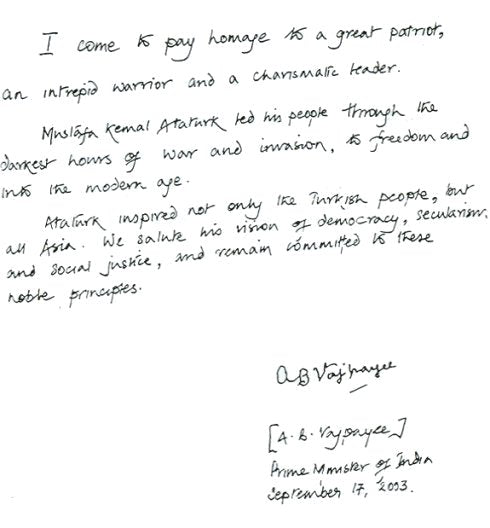 I come to pay homage to a great patriot,
an intrepid warrior and a charismatic leader.
Mustafa Kemal Ataturk led his people through the
darkest hours of war and invasion, to freedom and
into the modern age.
Ataturk inspired not only the Turkish people, but
all Asia. We salute his vision of democracy, secularism,
and social justice, and remain committed to these
noble principles.
A B Vajpayee
[A. B. Vajpayee]
Prime Minister of India
September 17, 2003.